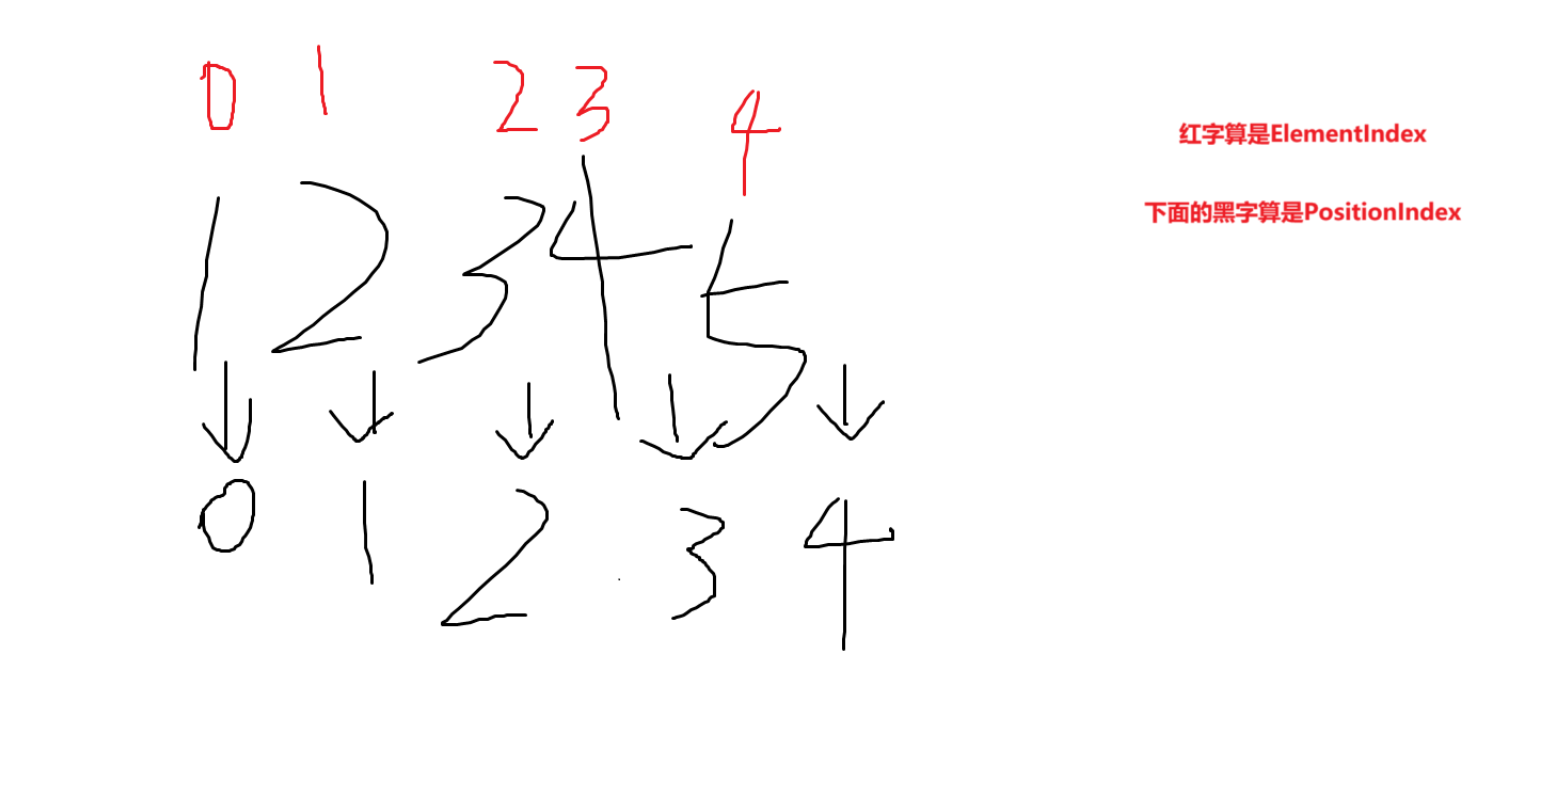 0 1 2 3 4
1 2 3 4 5
0 1 2 3 4
红字算是ElementIndex
下面的黑字算是PositionIndex